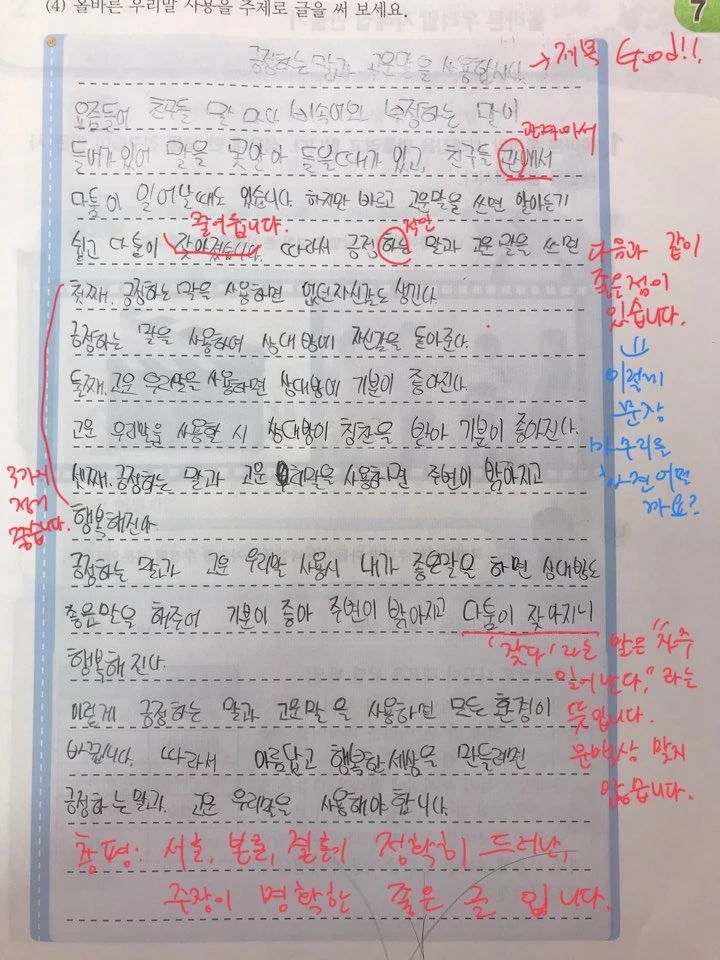 (4) 올바른 우리말 사용을 주제로 글을 써 보세요.
7
긍정하는 말과 고운말을 사용합시다.
→ 제목 Good!!
요즘들어 친구들 말 마다 비속어와 부정하는 말이
들어가 있어 말을 못알아 들을때가 있고, 친구들 관에서
관계에서
다툼이 일어날때도 있습니다. 하지만 바르고 고운말을 쓰면 알아듣기
줄어듭니다.
적인
쉽고 다툼이 잦아졌습니다. 따라서 긍정하는 말과 고운 말을 쓰면
다음과 같이
좋은점이
있습니다.
이렇게
문장
마무리를
하면 어떨
까요?
첫째, 긍정하는 말을 사용하면 없던자신감도 생긴다.
긍정하는 말을 사용하여 상대방에 자신감을 돋아준다.
둘째, 고운 우리말을 사용하면 상대방에 기분이 좋아진다.
고운 우리말을 사용할 시 상대방이 칭찬을 받아 기분이 좋아진다.
셋째, 긍정하는 말과 고운 우리말을 사용하면 주변이 밝아지고
행복해진다
3가지
좋습니다.
긍정하는 말과 고운 우리말 사용시 내가 좋은말을 하면 상대방도
좋은말을 해주어 기분이 좋아 주변이 밝아지고 다툼이 잦아지니
행복해 진다.
'잦다'라는 말은 "자주
일어난다,"라는
뜻입니다.
문맥상 맞지
않습니다.
이렇게 긍정하는 말과 고운말을 사용하면 모든 환경이
바뀝니다. 따라서 아름답고 행복한세상을 만들려면
긍정하는말과 고운 우리말을 사용해야 합니다.
총평: 서론, 본론, 결론이 정확히 드러난,
주장이 명확한 좋은 글 입니다.